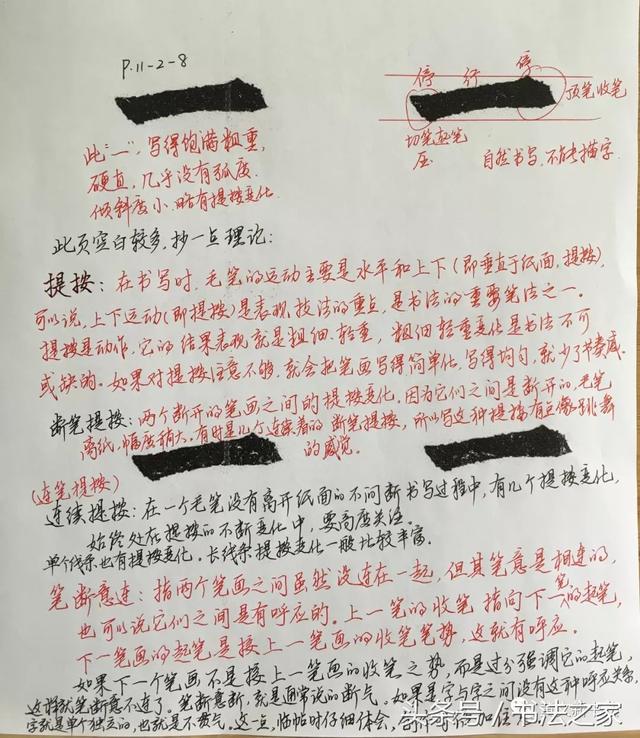 P.11-2-8
停 行 停
顶笔收笔
切笔起笔
压
自然书写，不能描字
此"一"，写得饱满粗重，
硬直，几乎没有弧度．
倾斜度小．略有提按变化．
此页空白较多，抄一点理论：
提按：在书写时，毛笔的运动主要是水平和上下(即垂直于纸面，提按)，
可以说，上下运动(即提按)是表现技法的重点，是书法的重要笔法之一。
提按是动作，它的结果表现就是粗细．轻重，粗细轻重变化是书法不可
或缺的。如果对提按注意不够，就会把笔画写得简单化，写得均匀，就少了节奏感。
断笔提按：两个断开的笔画之间的提按变化。因为它们之间是断开的，毛笔
离纸，幅度稍大。有时是几个连续着的断笔提按，所以写这种提按有点像跳舞
的感觉。
(连笔提按)
连续提按：在一个毛笔没有离开纸面的不间断书写过程中，有几个提按变化，
始终处在提按的不断变化中，要高度关注。
单个线条也有提按变化。长线条提按变化一般比较丰富。
笔断意连：指两个笔画之间虽然没连在一起，但其笔意是相连的，
也可以说它们之间是有呼应的。上一笔的收笔指向下一笔的起笔，
下一笔画的起笔是接上一笔画的收笔笔势，这就有呼应。
如果下一个笔画不是接上一笔画的收笔之势，而是过分强调它的起笔，
这样就笔断意不连了。笔断意断，就是通常说的断气。如果是字与字之间没有这种呼应关系，
字就是单个独立的，也就是不贯气。这一点，临帖时仔细体会，
头条号/书法之家